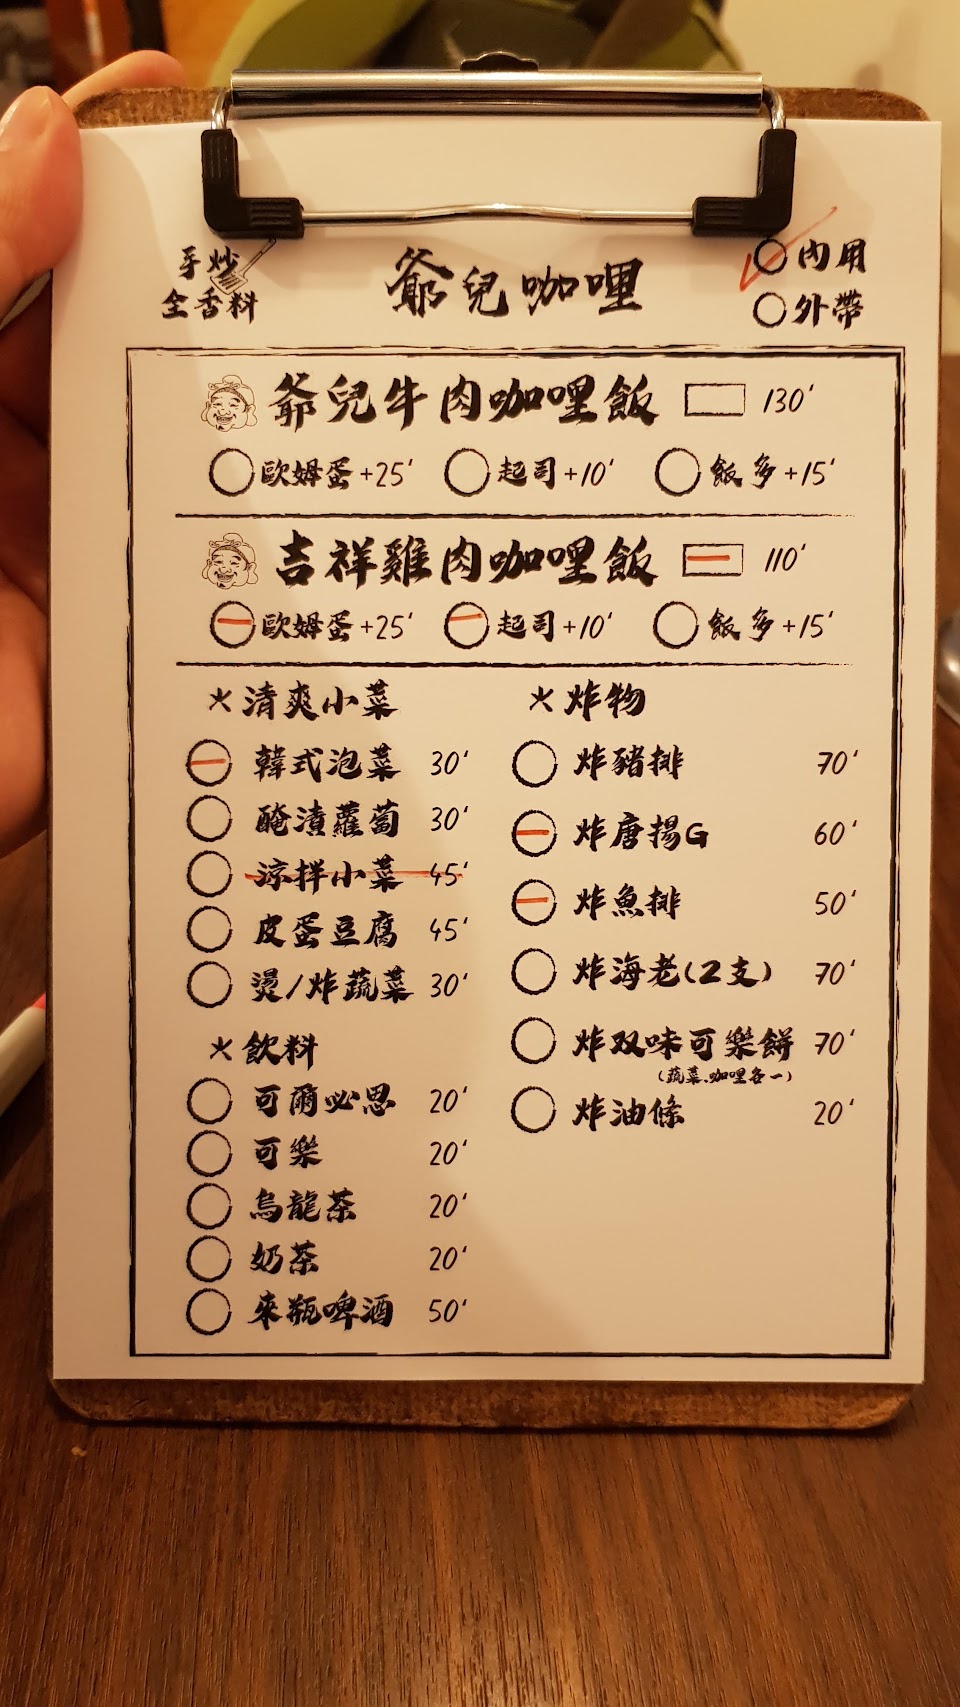 手炒
全香料
爺兒咖哩
內用
外帶
爺兒牛肉咖哩飯 130'
歐姆蛋+25' 起司+10' 飯多+15'
吉祥雞肉咖哩飯 110'
歐姆蛋+25' 起司+10' 飯多+15'
*清爽小菜
韓式泡菜 30'
醃漬蘿蔔 30'
涼拌小菜 45'
皮蛋豆腐 45'
燙/炸蔬菜 30'
*飲料
可爾必思 20'
可樂 20'
烏龍茶 20'
奶茶 20'
來瓶啤酒 50'
*炸物
炸豬排 70'
炸唐揚G 60'
炸魚排 50'
炸海老(2支) 70'
炸双味可樂餅 70'
(蔬菜、咖哩各一)
炸油條 20'